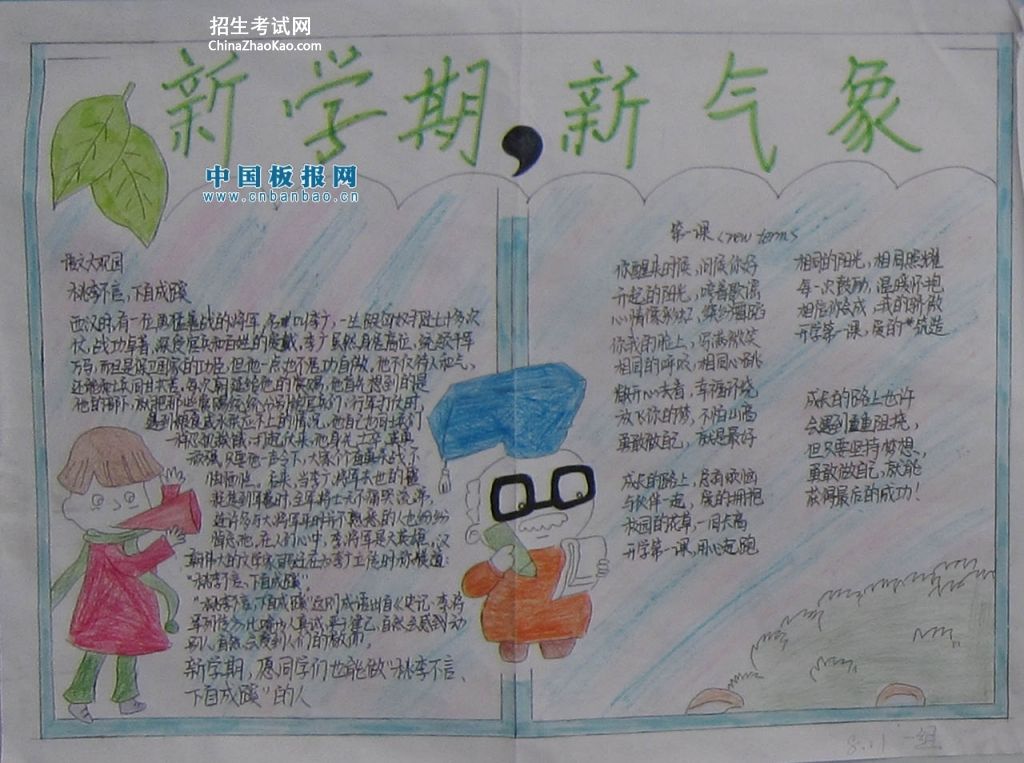 招生考试网
ChinaZhaoKao.com
新学期,新气象
中国板报网
www.cnbanbao.cn
语文大观园
桃李不言,下自成蹊
西汉时,有一位勇猛善战的将军,名叫李广,一生跟匈奴打过七十多次
仗,战功卓著,深受官兵和百姓的爱戴。李广虽然身居高位,统领千军
万马,而且是保卫国家的功臣,但他一点也不居功自傲。他不仅待人和气,
还能和士兵同甘共苦。每次朝廷给他的赏赐,他首先想到的是
他的部下,就把那些赏赐统统分给官兵们;行军打仗时,
遇到粮食或水供应不上的情况,他自己也同士兵们
一样忍饥挨饿;打起仗来,他身先士卒,英勇
顽强,只要他一声令下,大家个个奋勇杀敌,不
怕牺牲。后来,当李广将军去世的噩
耗传到军营时,全军将士无不痛哭流涕,
连许多与大将军平时并不熟悉的人也纷纷
悼念他。在人们心中,李将军是大英雄。汉
朝伟大的文学家司马迁在为李广立传时称赞道:
“桃李不言,下自成蹊”
“桃李不言,下自成蹊”这则成语出自《史记·李将
军列传》,比喻为人真诚,严于律己,自然会感动
别人,自然会受到人们的敬仰。
新学期,愿同学们也能做“桃李不言、
下自成蹊”的人
第一课 <new term>
你醒来时候,问候你好
升起的阳光,哼着歌谣
心情像彩虹,缤纷舞蹈
你我的脸上,写满微笑
相同的呼吸,相同心跳
敞开心去看,幸福环绕
放飞你的梦,不怕山高
勇敢做自己,就是最好
成长的路上,总有烦恼
与伙伴一起,爱的拥抱
校园的花草,一同长高
开学第一课,用心起跑
相同的阳光,相同照耀
每一次鼓励,温暖怀抱
相信你会成,我的骄傲
开学第一课,爱的
成长的路上也许
会遇到重重阻挠,
但只要坚持梦想、
勇敢做自己,就能
获得最后的成功!
一组